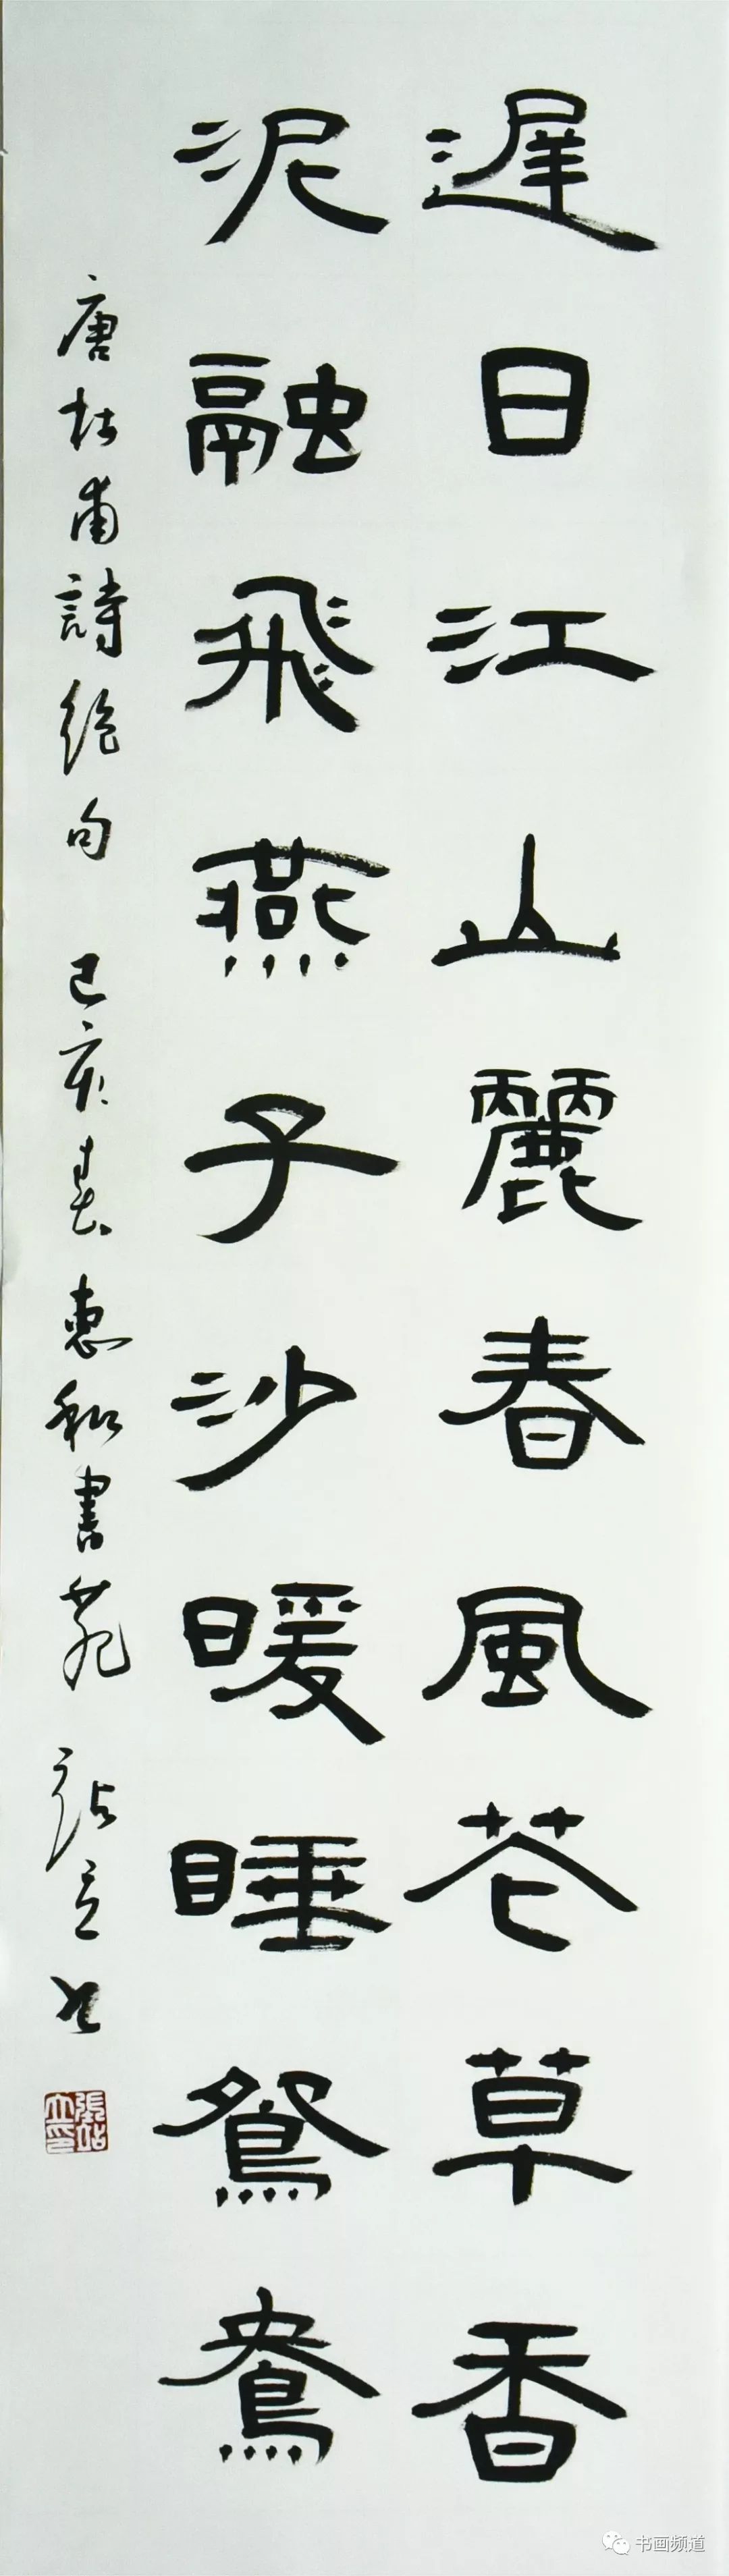 遲日江山麗春風花草香
泥融飛燕子沙暖睡鴛鴦
唐杜甫詩絶句 己亥春惠和書苑 張站立書
張站立印
书画频道